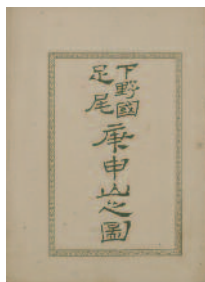 下野國
足尾
庚申山之圖